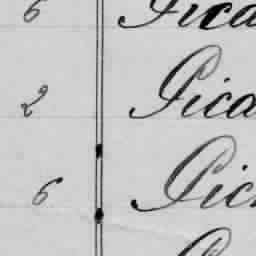 6 Pica
2 Pica
6 Pic